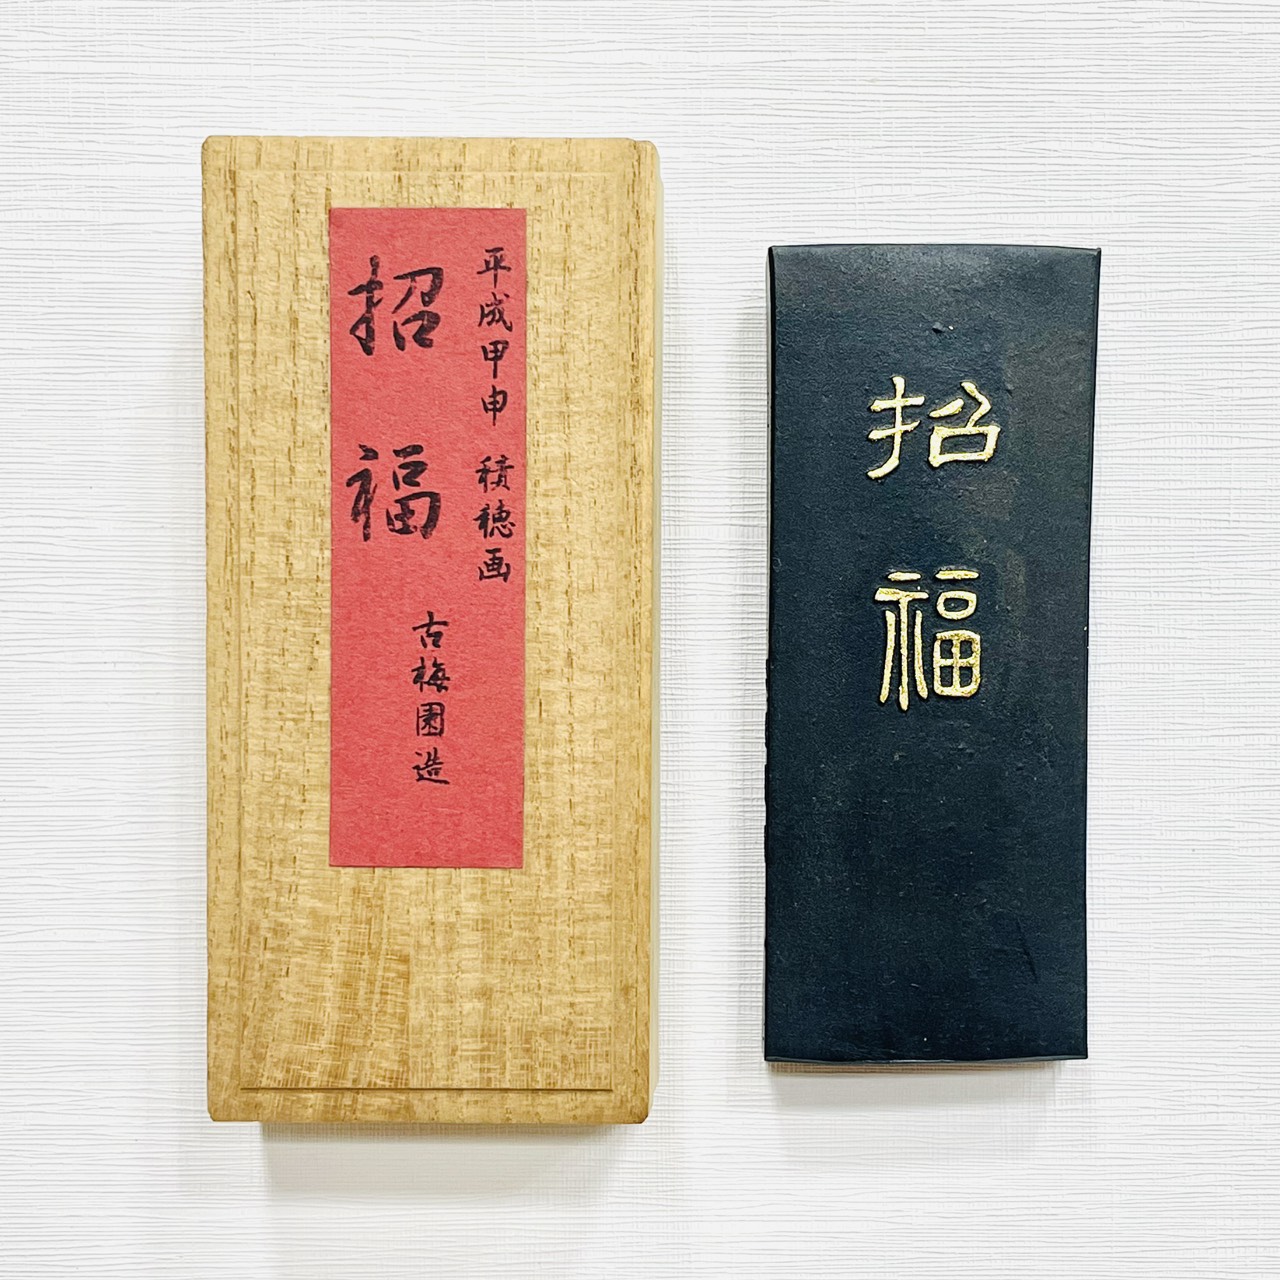 平成甲申 積穂画
招福
古梅園造
招福